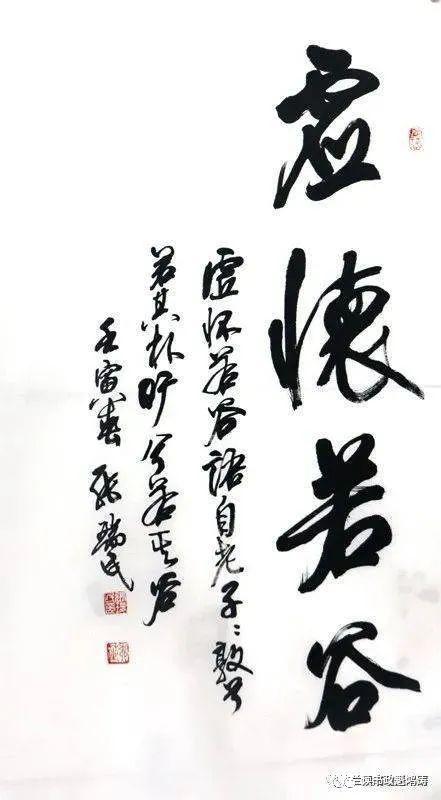 虚懷若谷
虚怀若谷語自老子：敦兮
若其朴旷兮若其谷
壬寅春 張瑞民